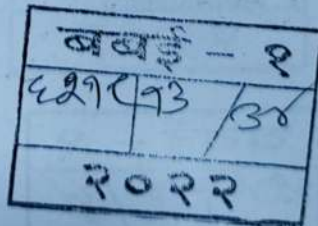 बबई - १
६२१८ १३ / ३४
२०२२